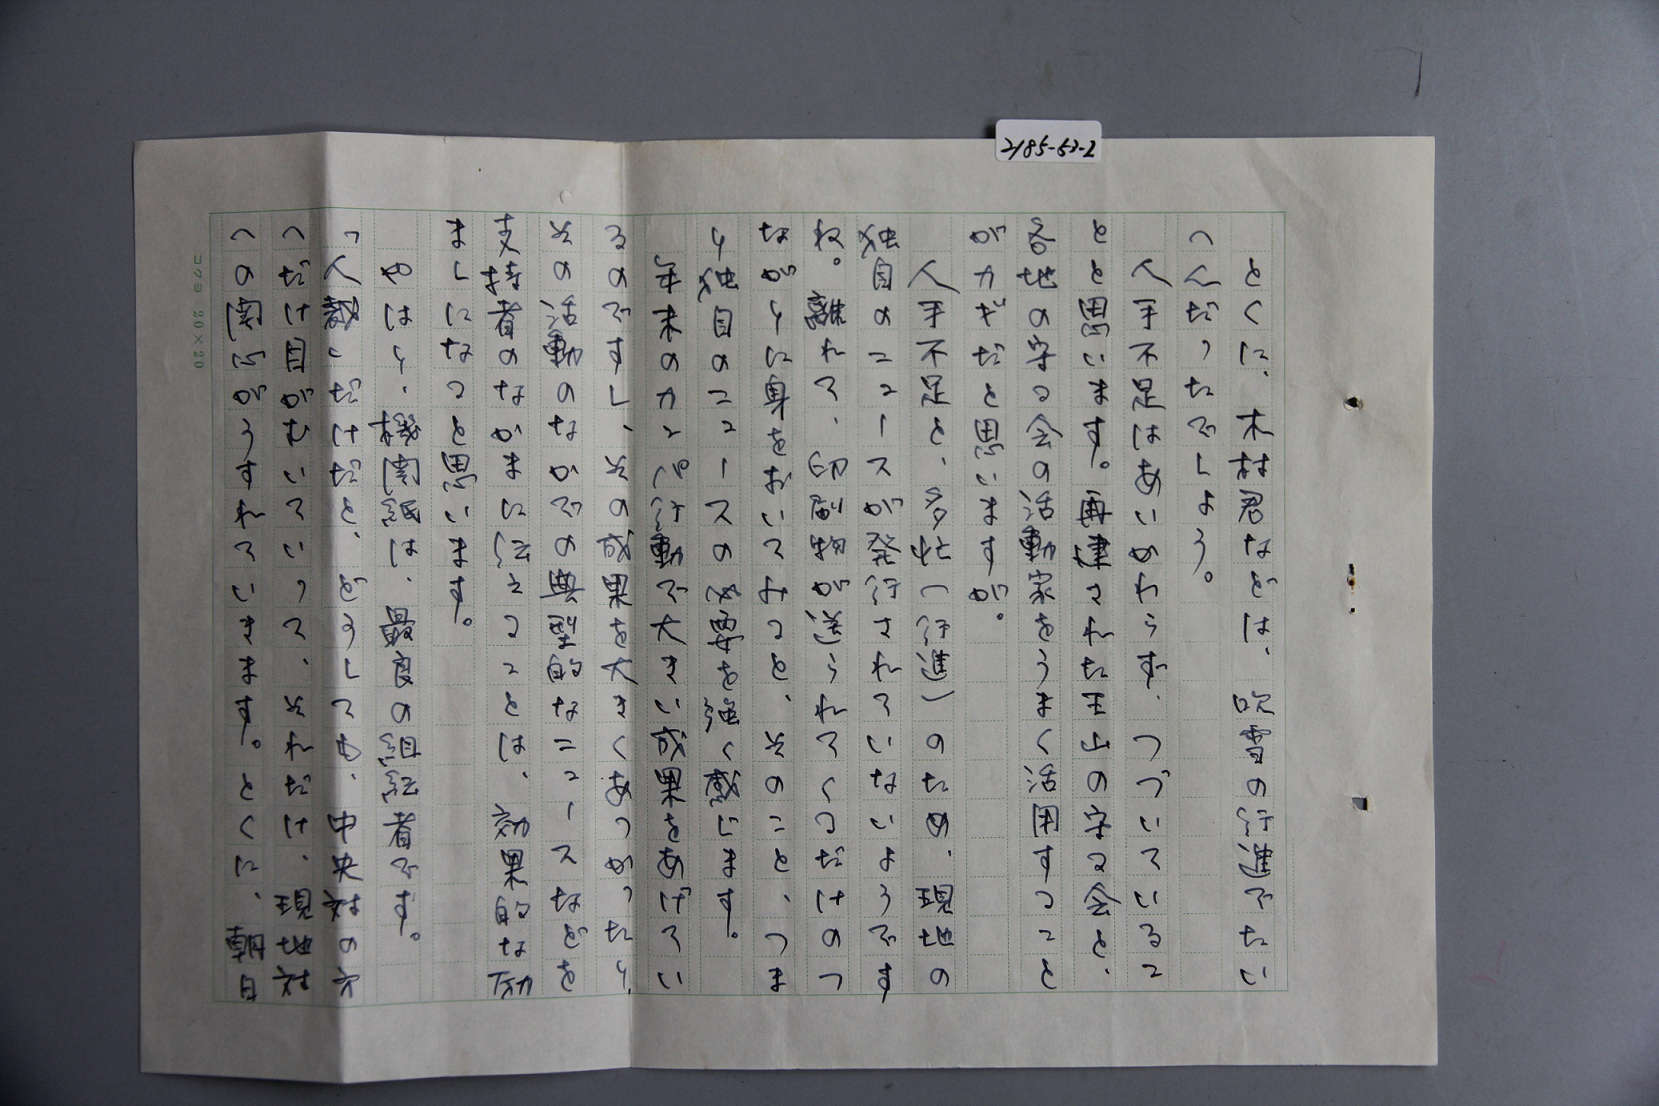 2185-53-2
とくに、木村君などは、吹雪の行進でたい
へんだったでしょう。
人手不足はあいかわらず、つづいているこ
とと思います。再建された王山の守る会と、
各地の守る会の活動家をうまく活用すること
がカギだと思いますが。
人手不足と、多忙(行進)のため、現地の
独自のニュースが発行されていないようです
ね。離れて、印刷物が送られてくるだけのつ
ながりに身をおいてみると、そのこと、つま
り独自のニュースの必要を強く感じます。
年末のカンパ行動で大きい成果をあげてい
るのですし、その成果を大きくあつかったり、
その活動のなかでの典型的なニュースなどを
支持者のなかまに伝えることは、効果的な励
ましになると思います。
やはり、機関紙は、最良の組織者です。
「人裁」だけだと、どうしても、中央対の方
へだけ目がむいていって、それだけ、現地対
への関心がうすれていきます。とくに、朝日
コクヨ 20×20